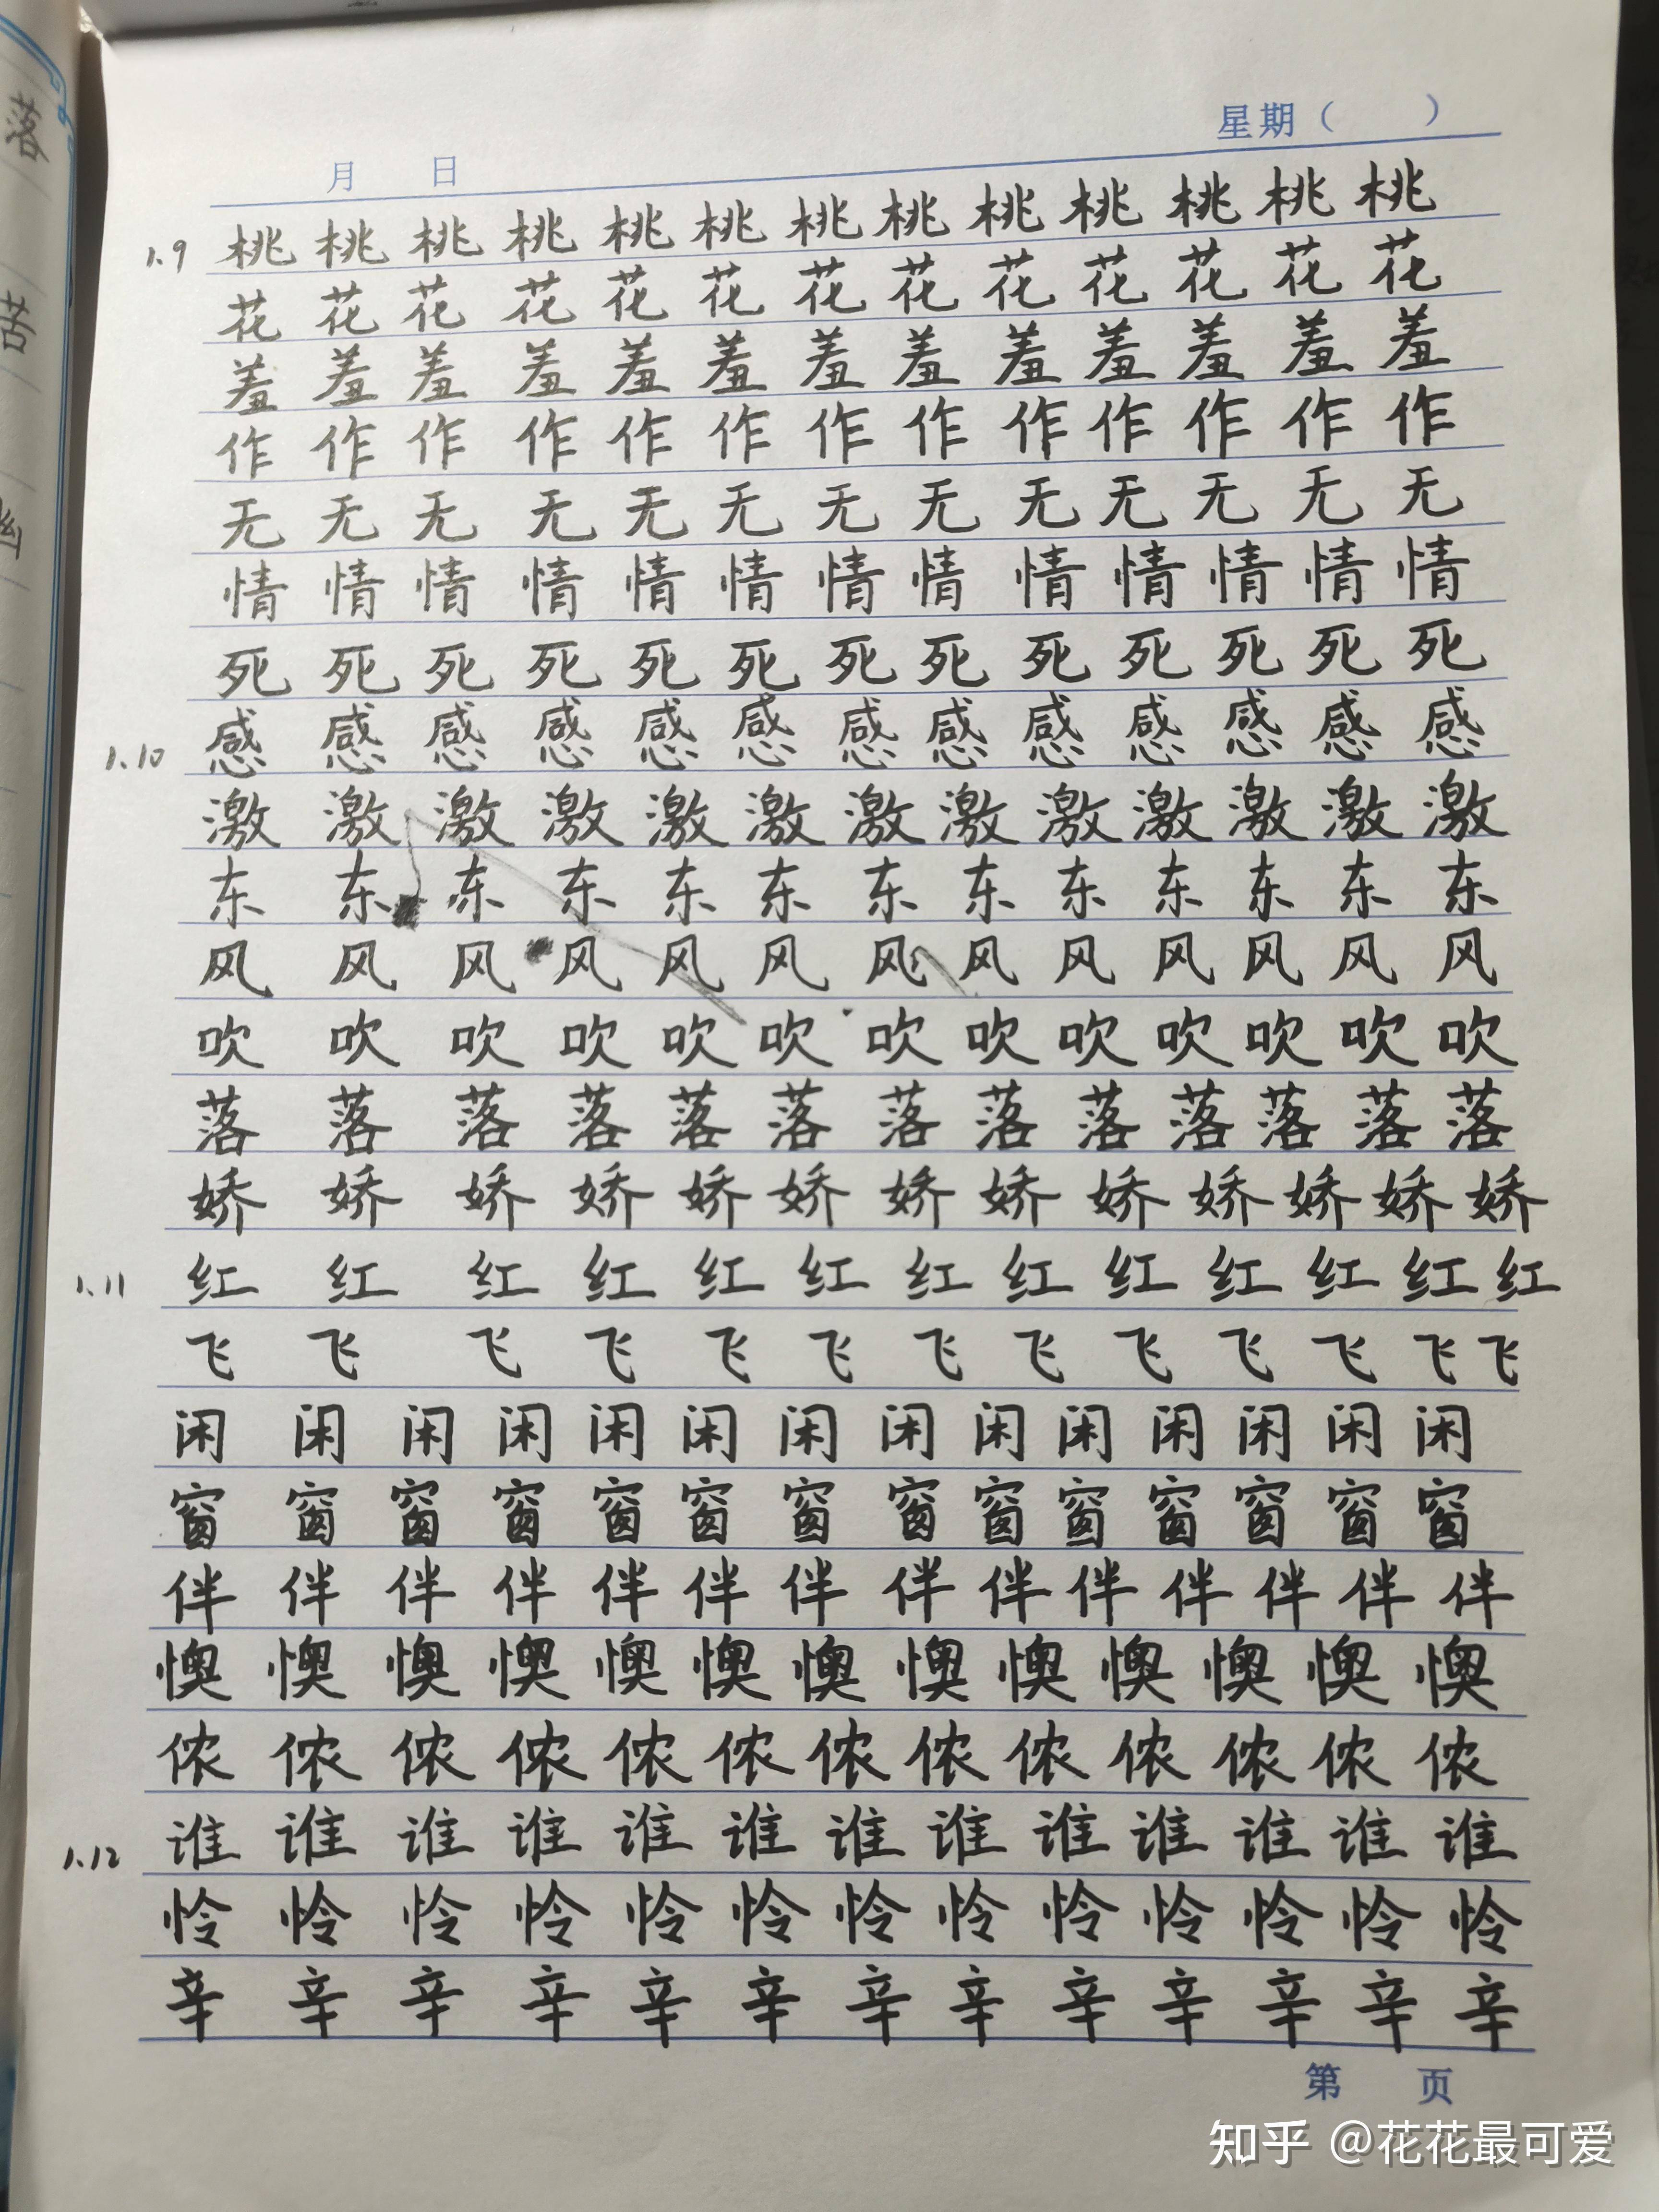 落
苦
星期（ ）
月 日
1.9 桃 桃 桃 桃 桃 桃 桃 桃 桃 桃 桃 桃 桃
花 花 花 花 花 花 花 花 花 花 花 花 花
羞 羞 羞 羞 羞 羞 羞 羞 羞 羞 羞 羞 羞
作 作 作 作 作 作 作 作 作 作 作 作 作
无 无 无 无 无 无 无 无 无 无 无 无 无
情 情 情 情 情 情 情 情 情 情 情 情 情
死 死 死 死 死 死 死 死 死 死 死 死 死
1.10 感 感 感 感 感 感 感 感 感 感 感 感 感
激 激 激 激 激 激 激 激 激 激 激 激 激
东 东 东 东 东 东 东 东 东 东 东 东 东
风 风 风 风 风 风 风 风 风 风 风 风 风
吹 吹 吹 吹 吹 吹 吹 吹 吹 吹 吹 吹 吹
落 落 落 落 落 落 落 落 落 落 落 落 落
娇 娇 娇 娇 娇 娇 娇 娇 娇 娇 娇 娇 娇
1.11 红 红 红 红 红 红 红 红 红 红 红 红 红
飞 飞 飞 飞 飞 飞 飞 飞 飞 飞 飞 飞 飞
闲 闲 闲 闲 闲 闲 闲 闲 闲 闲 闲 闲 闲 闲
窗 窗 窗 窗 窗 窗 窗 窗 窗 窗 窗 窗 窗 窗
伴 伴 伴 伴 伴 伴 伴 伴 伴 伴 伴 伴 伴 伴
懊 懊 懊 懊 懊 懊 懊 懊 懊 懊 懊 懊 懊
侬 侬 侬 侬 侬 侬 侬 侬 侬 侬 侬 侬 侬
1.12 谁 谁 谁 谁 谁 谁 谁 谁 谁 谁 谁 谁 谁
怜 怜 怜 怜 怜 怜 怜 怜 怜 怜 怜 怜 怜
辛 辛 辛 辛 辛 辛 辛 辛 辛 辛 辛 辛 辛
第 页
知乎 @花花最可爱